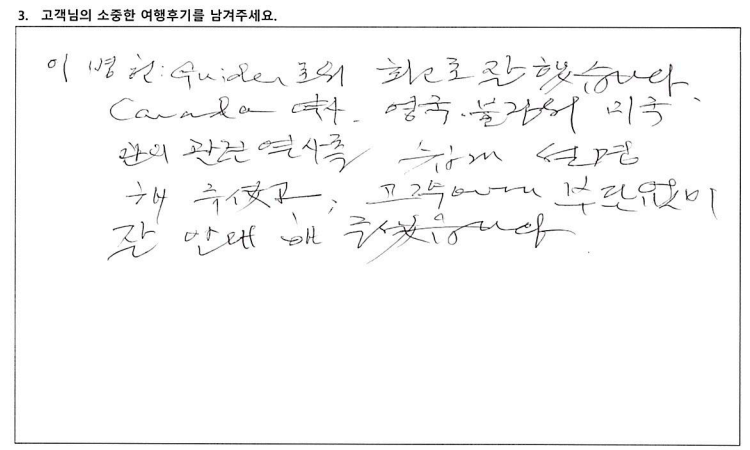 3. 고객님의 소중한 여행후기를 남겨주세요.
이병헌: Guider로의 최고로 잘 했습니다.
Canada 역사. 영국.불란서 미국
과의 관련역사를 쉽게 설명
해 주셨고, 고객에게 부담없이
잘 안내해 주셨습니다.